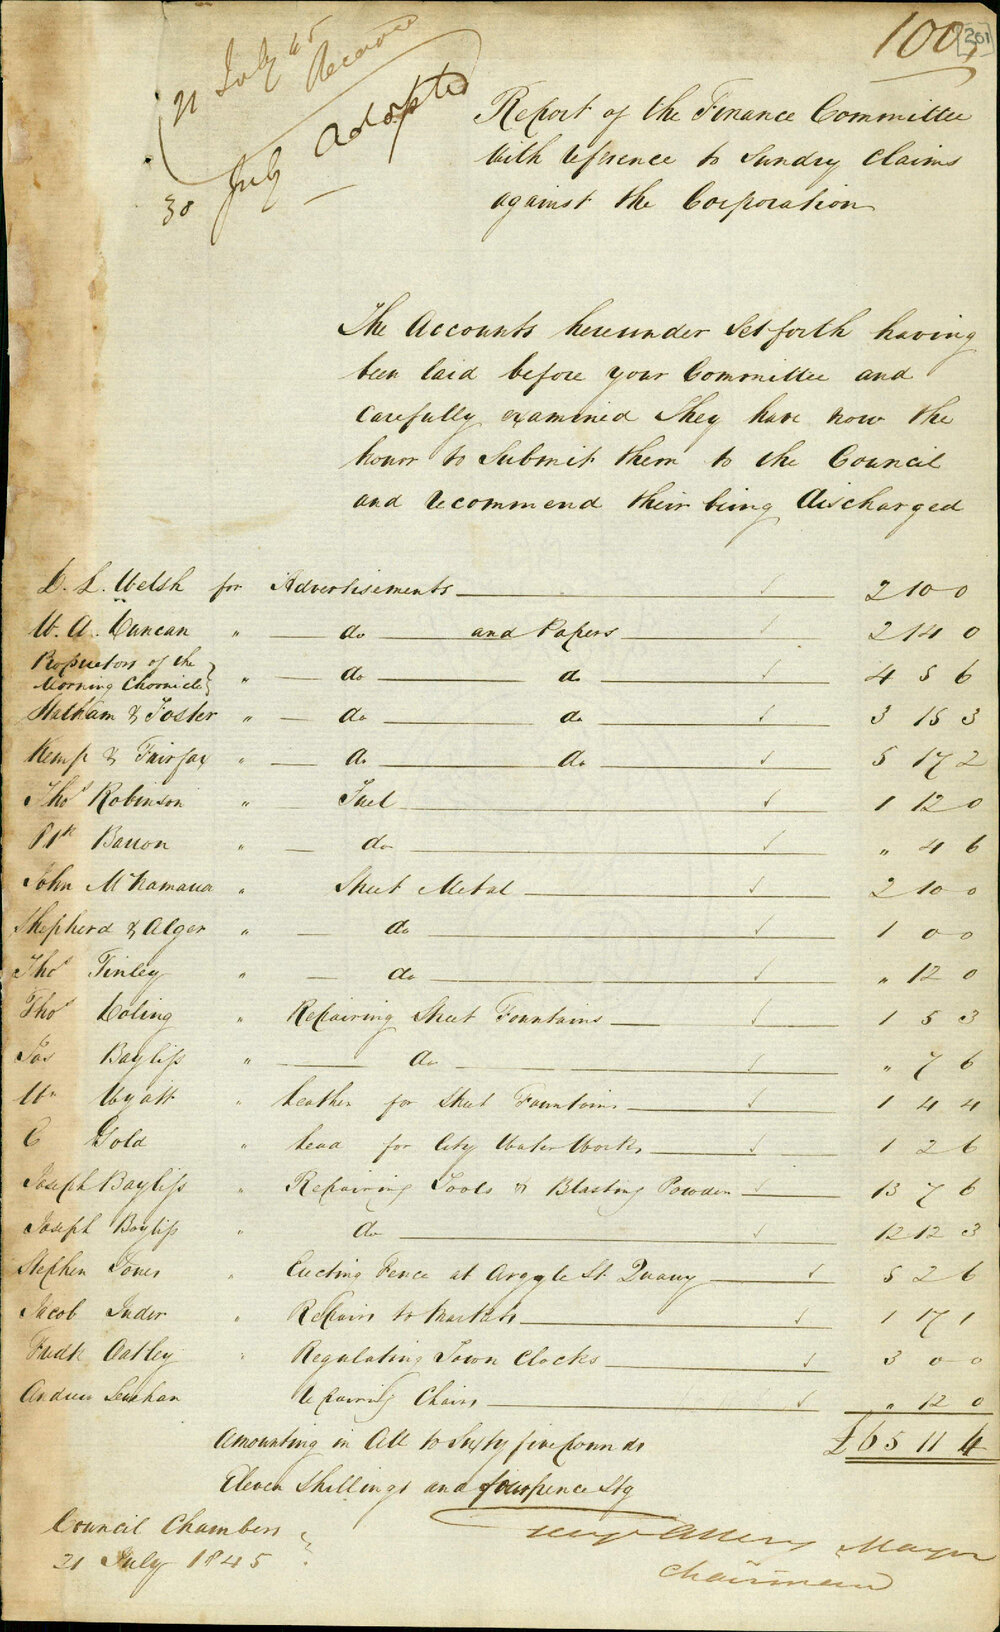 100
201
21 July 45
Received
30 July Adopted
Report of the Finance Committee
with reference to Sundry Claims
against the Corporation
The Accounts hereunder Set forth having
been laid before your Committee and
Carefully examined They have now the
honor to Submit them to the Council
and recommend their being discharged
D. L. Welsh for Advertisements 2 10 0
W. A. Duncan " do and Papers 2 14 0
Proprietors of the
Morning Chronicle } " do do 4 5 6
Statham & Foster " do do 3 15 3
Kemp & Fairfax " do do 5 17 2
Thos Robinson " Fuel 1 12 0
Ptk Barron " do " 4 6
John McNamara " Sheet Metal 2 10 0
Shepherd & Alger " do 1 0 0
Thos Finley " do " 12 0
Thos Coling " Repairing Street Fountains 1 5 3
Jas Bayliss " do " 7 6
Wm Wyatt " Leather for Street Fountains 1 4 4
C Gold " Lead for City Water Works 1 2 6
Joseph Bayliss " Repairing Tools & Blasting Powder 13 7 6
Joseph Bayliss " do 12 12 3
Stephen Jones " Erecting Fence at Argyle St Quarry 5 2 6
Jacob Inder " Repairs to Markets 1 17 1
Fredk Oatley " Regulating Town Clocks 3 0 0
Andrew Lenehan repairing Chairs " 12 0
Amounting in All to Sixty five pounds £65 11 4
Eleven Shillings and fourpence Stg
Council Chambers
21 July 1845
George Allen Mayor
Chairman